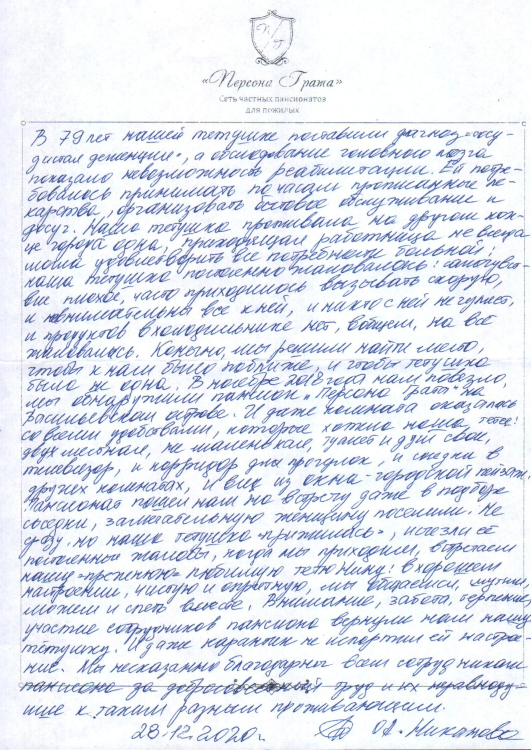 П Г
«Персона Грата»
Сеть частных пансионатов
для пожилых
В 79 лет нашей тетушке поставили диагноз "сосу-
дистая деменция", а обследование головного мозга
показало невозможность реабилитации. Ей потре-
бовалось принимать по часам прописанные ле-
карства, организовать бытовое обслуживание и
досуг. Наша тетушка проживала на другом кон-
це города одна, приходящая работница не всегда
могла удовлетворить все потребности больной:
наша тетушка постоянно жаловалась: самочувст-
вие плохое, часто приходилось вызывать скорую,
и невнимательны все к ней, и никто с ней не гуляет,
и продуктов в холодильнике нет, вобщем, на всё
жаловалась. Конечно, мы решили найти место,
чтобы к нам было поближе, и чтобы тетушка
была не одна. В ноябре 2018 года нам повезло,
мы обнаружили пансион "Персона Грата" на
Васильевском острове. И даже комната оказалась
со всеми удобствами, которые хотела наша тетя:
двухместная, не маленькая, туалет и душ свои,
телевизор, и корридор для прогулок, и соседи в
других комнатах, и вид из окна - городской пейзаж.
Пансионат пошел нам на встречу даже в подборе
соседки, замечательную женщину поселили. Не
сразу, но наша тетушка "прижилась", исчезли её
постоянные жалобы, когда мы приходим, встречаем
нашу "прежнюю" любимую тетю Нину: в хорошем
настроении, чистую и опрятную, мы общаемся, шутим,
можем и спеть вместе. Внимание, забота, терпение,
участие сотрудников пансиона вернули нам нашу
тётушку. И даже карантин не испортил ей настрое-
ние. Мы несказанно благодарны всем сотрудникам
пансиона за добросовестный труд и их неравноду-
шие к таким разным проживающим.
28.12.2020г. О.А. Никанова